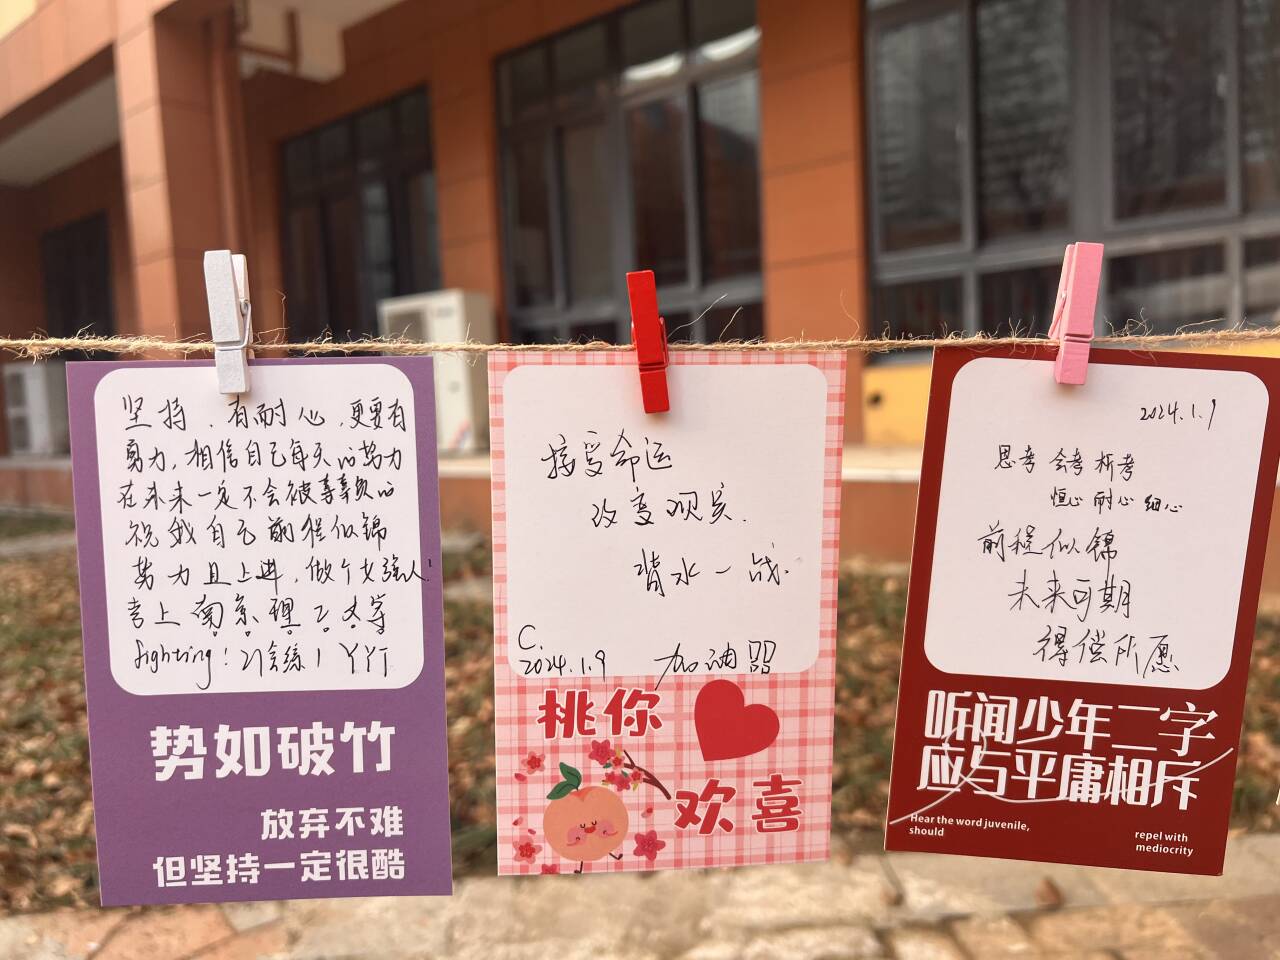 坚持、有耐心,更要有
勇力,相信自己每天的努力
在未来一定不会被辜负的
祝我自己前程似锦
努力且上进,做个女强人!
考上南京理工大学
fighting!
势如破竹
放弃不难
但坚持一定很酷
接受命运
改变现实.
背水一战.
C.
2024.1.9 加油
桃你
欢喜
2024.1.9
思考 会考 析考
恒心 耐心 细心
前程似锦
未来可期
得偿所愿
听闻少年二字
应与平庸相斥
Hear the word juvenile,
should
repel with
mediocrity